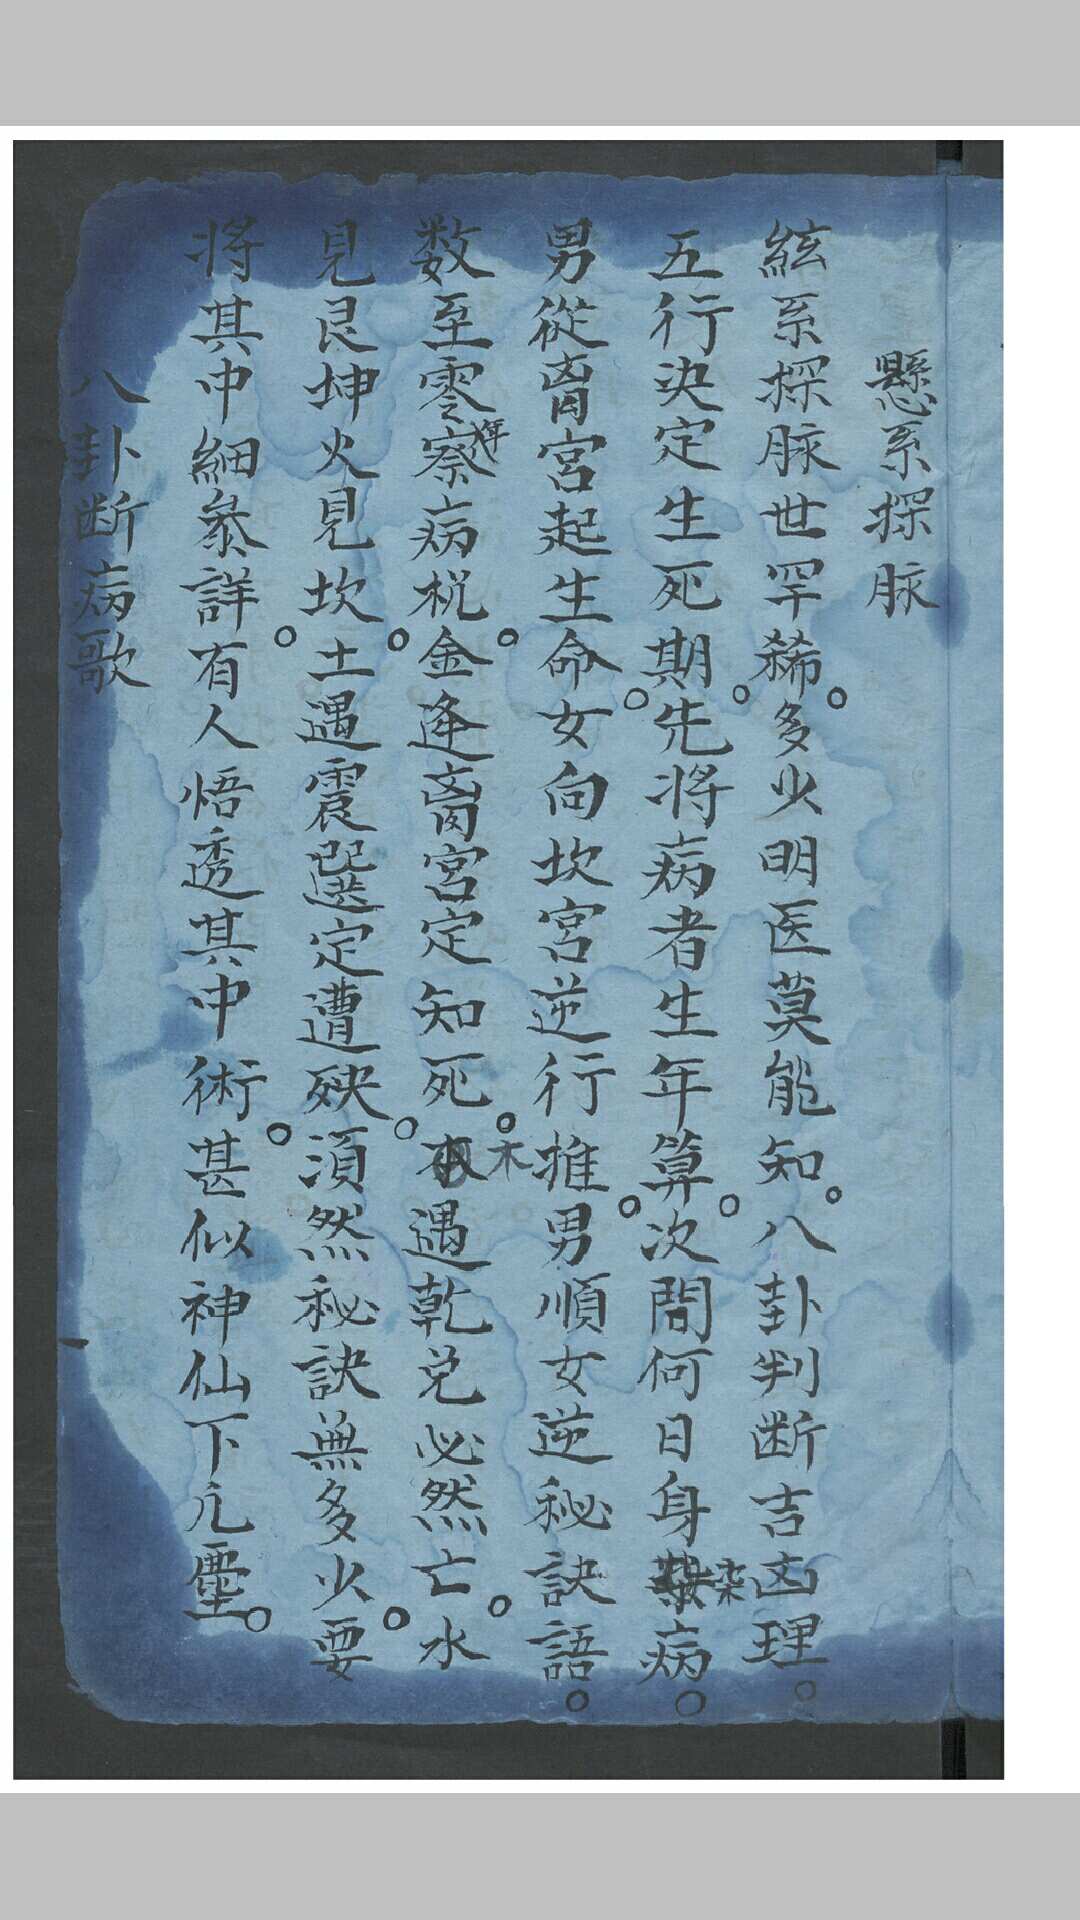 懸系探脉
絃系探脉世罕稀。多少明医莫能知。八卦判断吉凶理。
五行决定生死期。先将病者生年算。次問何日身染病。
男從离宮起生命。女向坎宮逆行推。男順女逆秘訣語。
数至零年察病机。金逢离宮定知死。木遇乾兑必然亡。水
見艮坤火見坎。土遇震巽定遭殃。須然秘訣無多少。要
将其中細叅詳。有人悟透其中術。甚似神仙下凢塵。
八卦断病歌